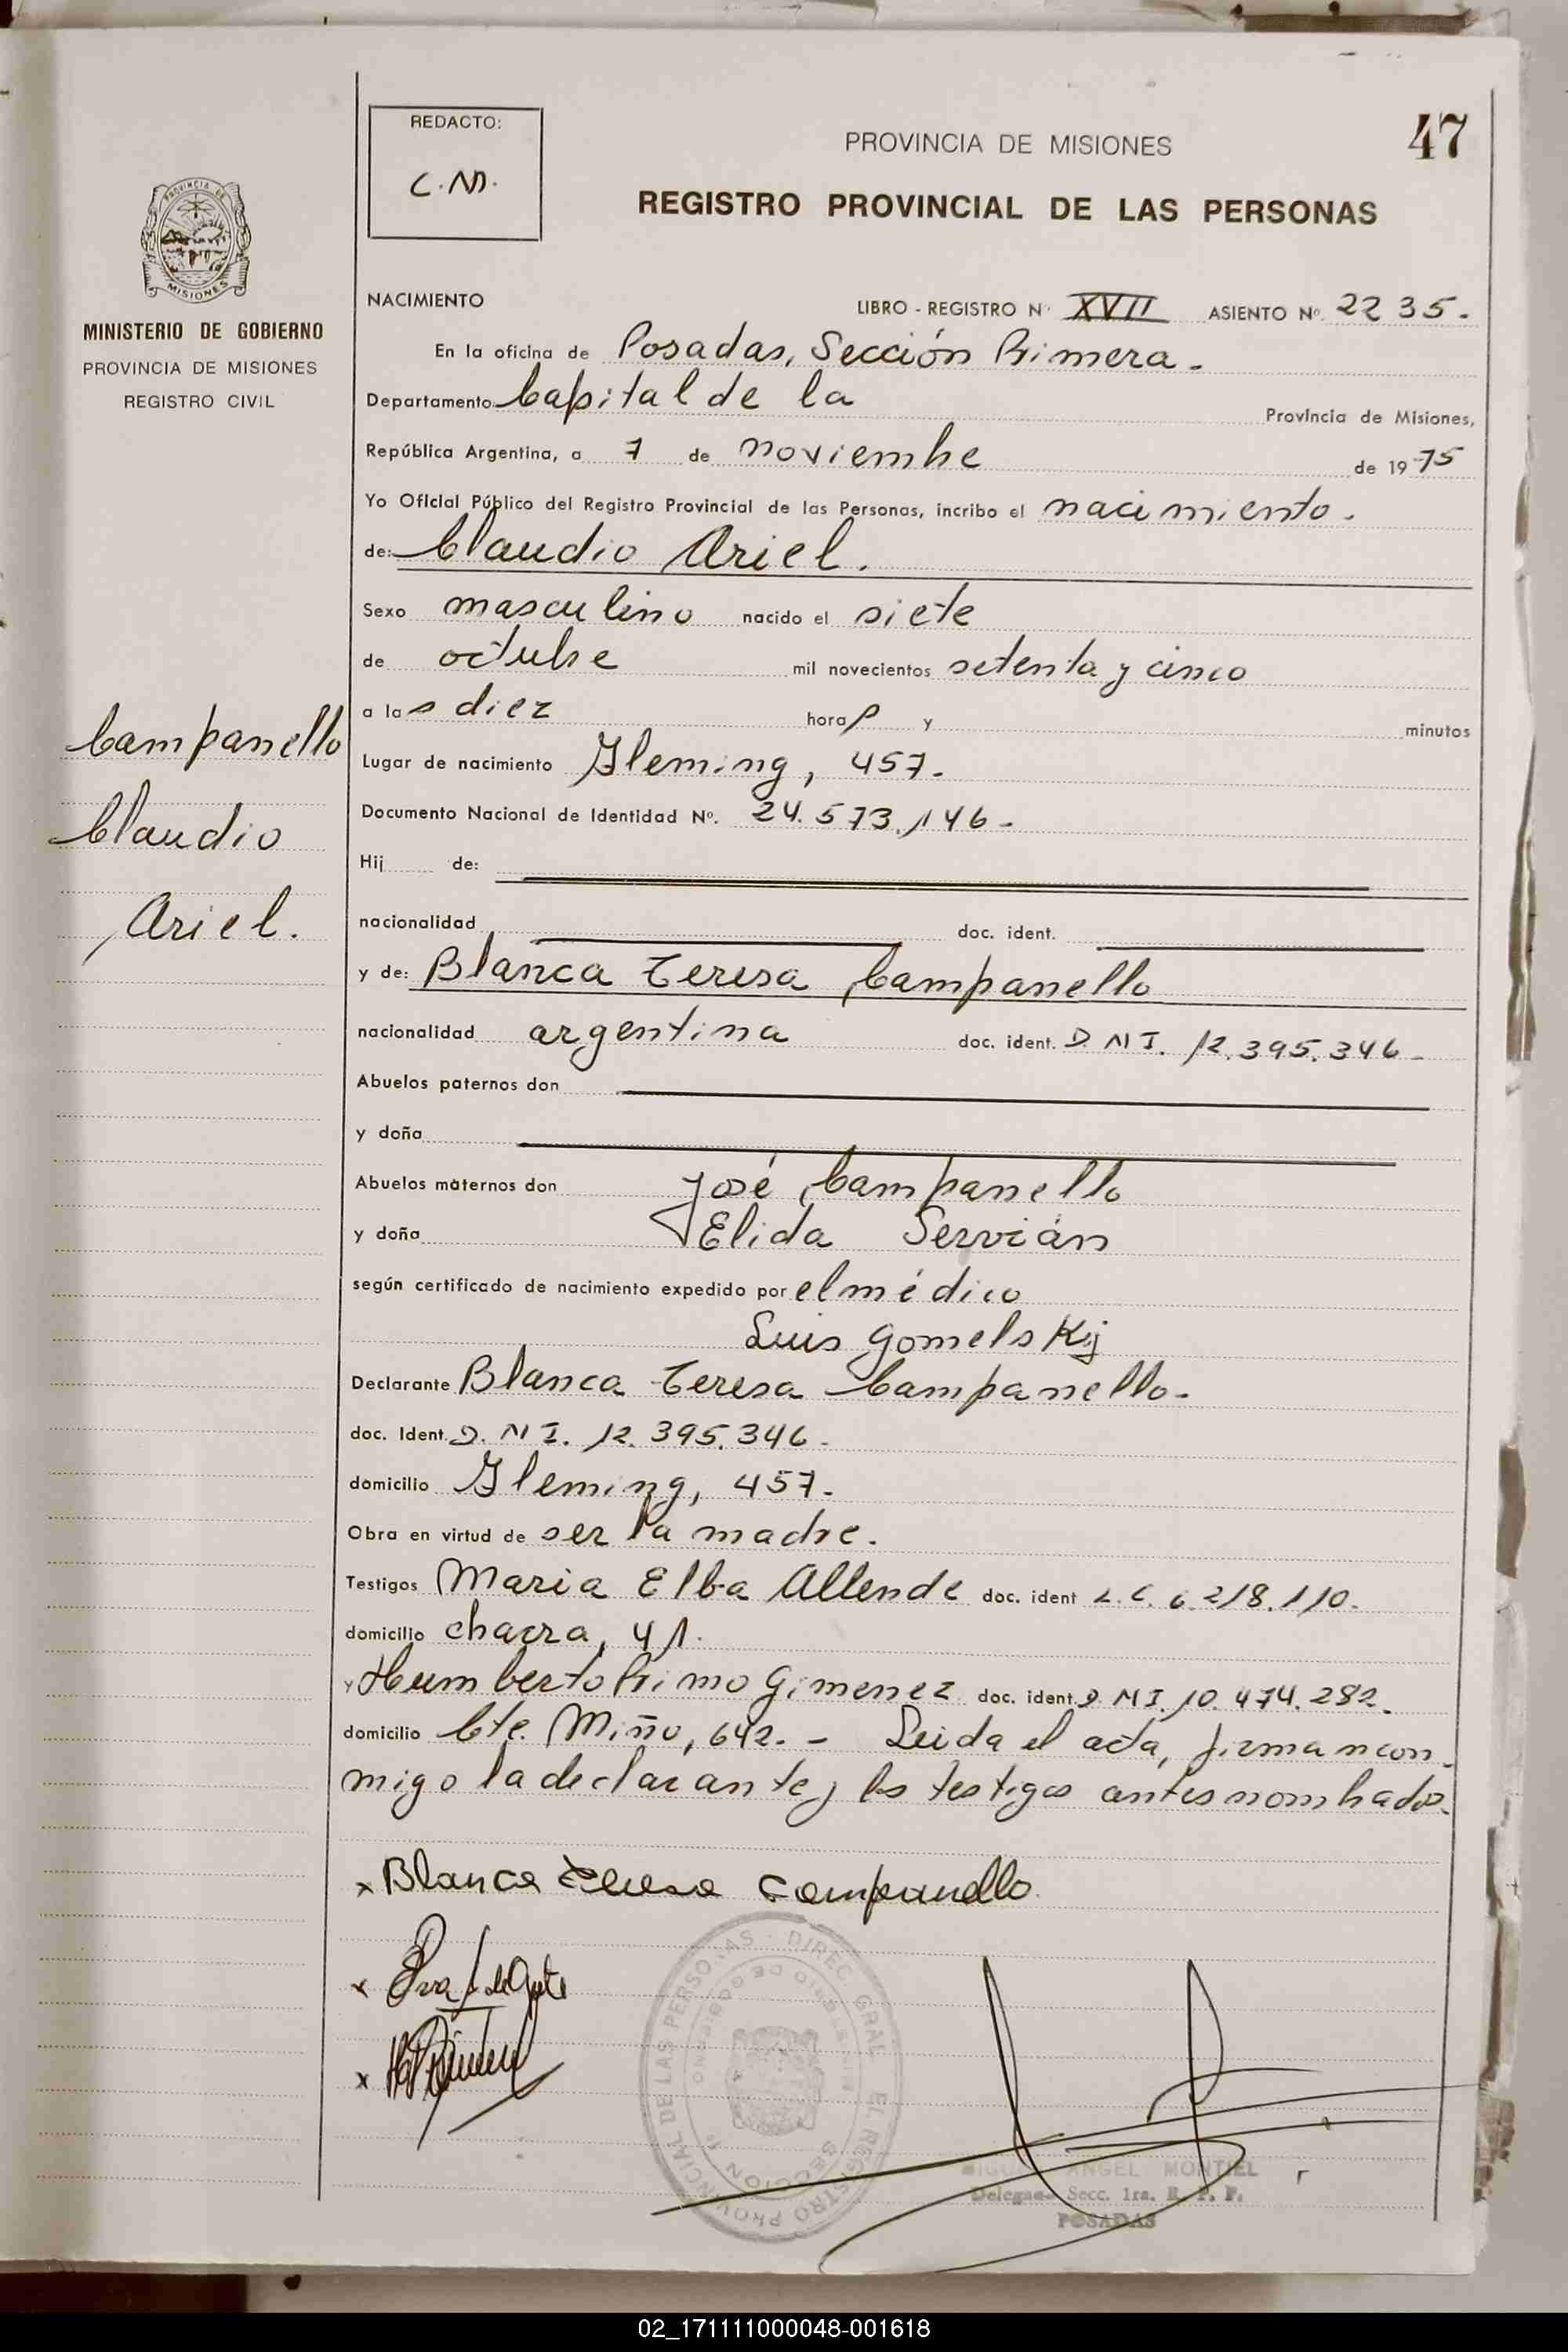 47
REDACTO:
C.M.
PROVINCIA DE MISIONES
REGISTRO PROVINCIAL DE LAS PERSONAS
PROVINCIA DE
MISIONES
MINISTERIO DE GOBIERNO
PROVINCIA DE MISIONES
REGISTRO CIVIL
Campanello
Claudio
Ariel.
NACIMIENTO LIBRO - REGISTRO Nº XVII ASIENTO Nº. 2235.
En la oficina de Posadas, Sección Primera.
Departamento Capital de la Provincia de Misiones,
República Argentina, a 7 de noviembre de 1975
Yo Oficial Público del Registro Provincial de las Personas, incribo el nacimiento.
de: Claudio Ariel.
Sexo masculino nacido el siete
de octubre mil novecientos setenta y cinco
a las diez horas y minutos
Lugar de nacimiento Fleming, 457.
Documento Nacional de Identidad Nº. 24.573.146-
Hij de:
nacionalidad doc. ident.
y de: Blanca Teresa Campanello
nacionalidad argentina doc. ident. D.N.I. 12.395.346-
Abuelos paternos don
y doña
Abuelos maternos don José Campanello
y doña Elida Servián
según certificado de nacimiento expedido por el médico
Luis Gomelskij
Declarante Blanca Teresa Campanello-
doc. Ident. D.N.I. 12.395.346-
domicilio Fleming, 457-
Obra en virtud de ser la madre.
Testigos Maria Elba Allende doc. ident L.C. 6.218.110-
domicilio chacra, 41.
y Humberto Primo Gimenez doc. ident. D.N.I. 10.474.282-
domicilio Cte. Miño, 642. - Leida el acta, firman con-
migo la declarante y los testigos antes nombrados.
x Blanca Teresa Campanello
x
x
DIREC. GRAL. EL REGISTRO PROVINCIAL DE LAS PERSONAS
MINISTERIO DE GOBIERNO
SECCION 1
MIGUEL ANGEL MONTIEL
Delegado Secc. 1ra. R. P. P.
POSADAS
02_171111000048-001618